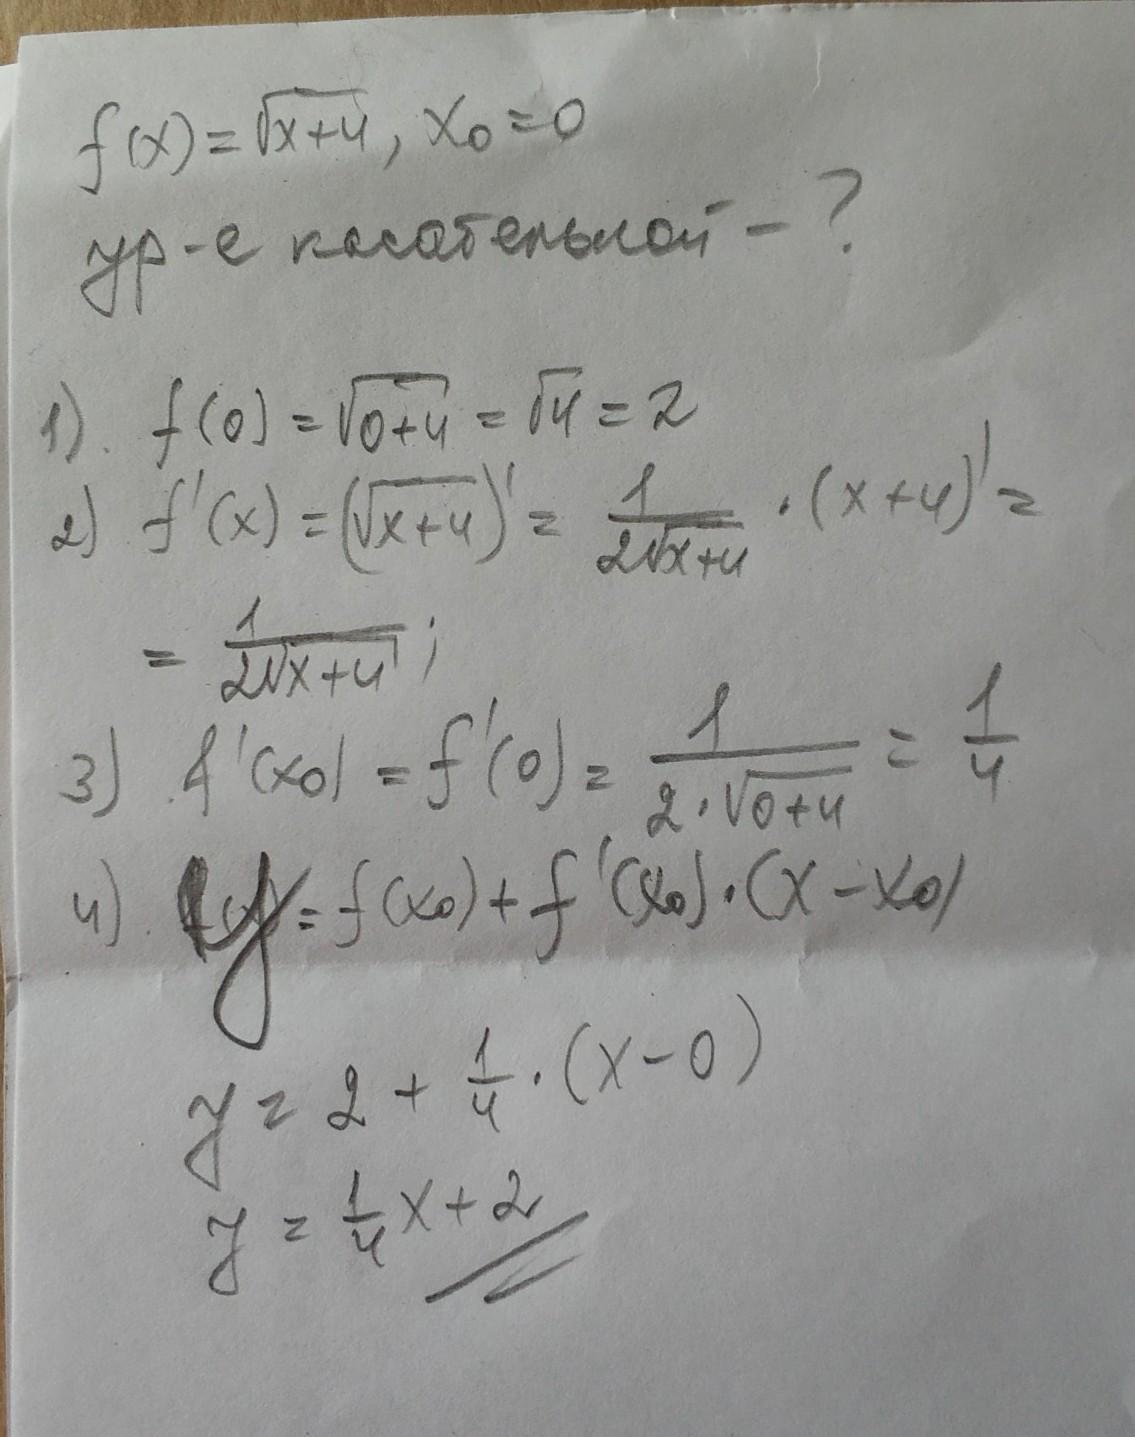 f(x) = √x+4, x₀ = 0
ур-е касательной - ?
1). f(0) = √0+4 = √4 = 2
2) f'(x) = (√x+4)' = 1/2√x+4 · (x+4)' =
= 1/2√x+4 ;
3) f'(x₀) = f'(0) = 1/2·√0+4 = 1/4
4). y = f(x₀) + f'(x₀)·(x-x₀)
y = 2 + 1/4 · (x-0)
y = 1/4 x + 2